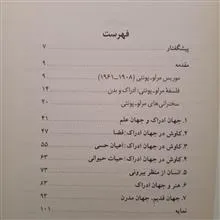 فهرست
پیشگفتار ۷
مقدمه ۹
موریس مرلو-پونتی (۱۹۰۸-۱۹۶۱) ۹
فلسفهٔ مرلو-پونتی: ادراک و بدن ۱۴
سخنرانی‌های مرلو-پونتی ۲۰
۱. جهان ادراک و جهان علم ۴۱
۲. کاوش در جهان ادراک: فضا ۴۷
۳. کاوش در جهان ادراک: اعیان حسی ۵۵
۴. کاوش در جهان ادراک: حیات حیوانی ۶۳
۵. انسان از منظر بیرونی ۷۳
۶. هنر و جهان ادراک ۸۳
۷. جهان قدیم، جهان مدرن ۹۳
نمایه ۱۰۱